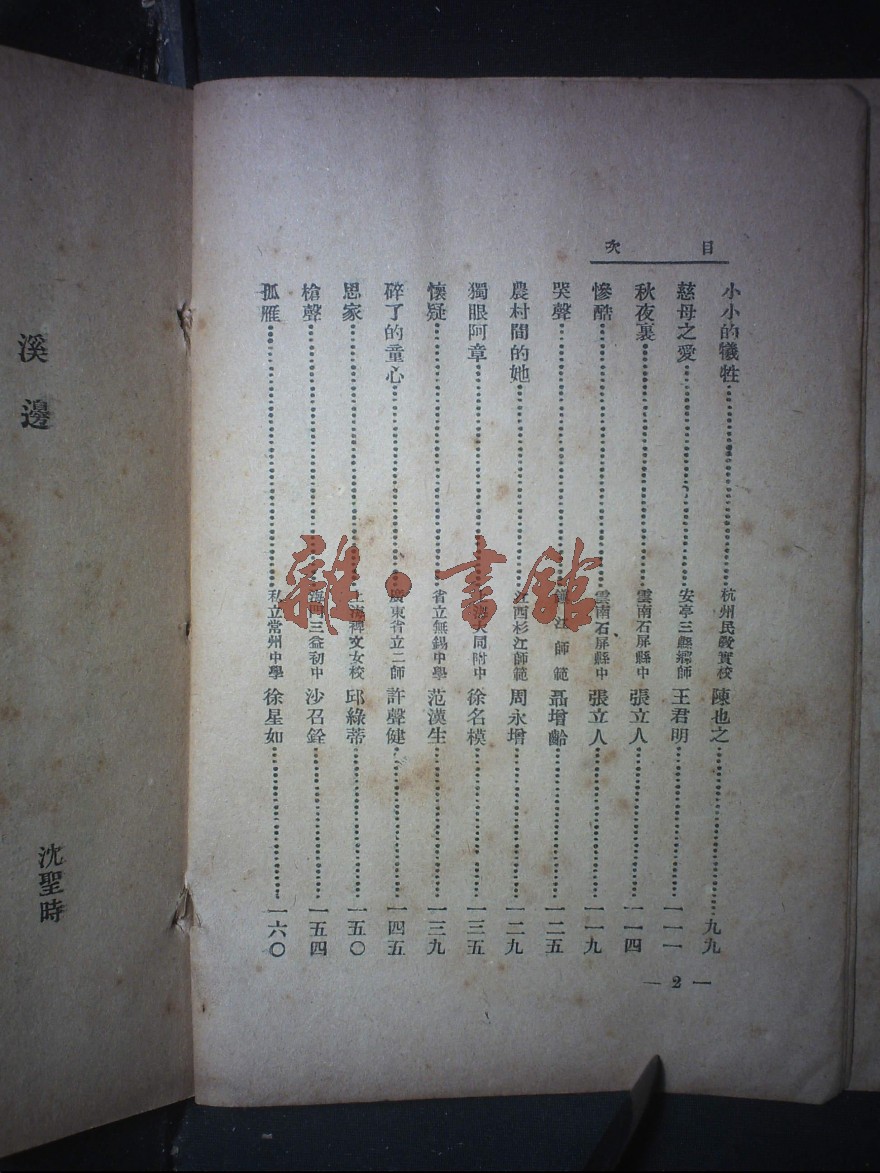 目次
小小的犧牲……杭州民敎實校 陳也之……九九
慈母之愛……安亭三縣鄉師 王君明……一一一
秋夜裏……雲南石屏縣中 張立人……一一四
慘酷……雲南石屏縣中 張立人……一一九
哭聲……鎮江師範 聶增齡……一二五
農村間的她……江西杉江師範 周永增……一二九
獨眼阿章……上海大同附中 徐名模……一三五
懷疑……省立無錫中學 范漢生……一三九
碎了的童心……廣東省立二師 許聲健……一四五
思家……上海裨文女校 邱綠蒂……一五〇
槍聲……海門三益初中 沙召銓……一五四
孤雁……私立常州中學 徐星如……一六〇
— 2 —
溪邊
沈聖時
雜·書館